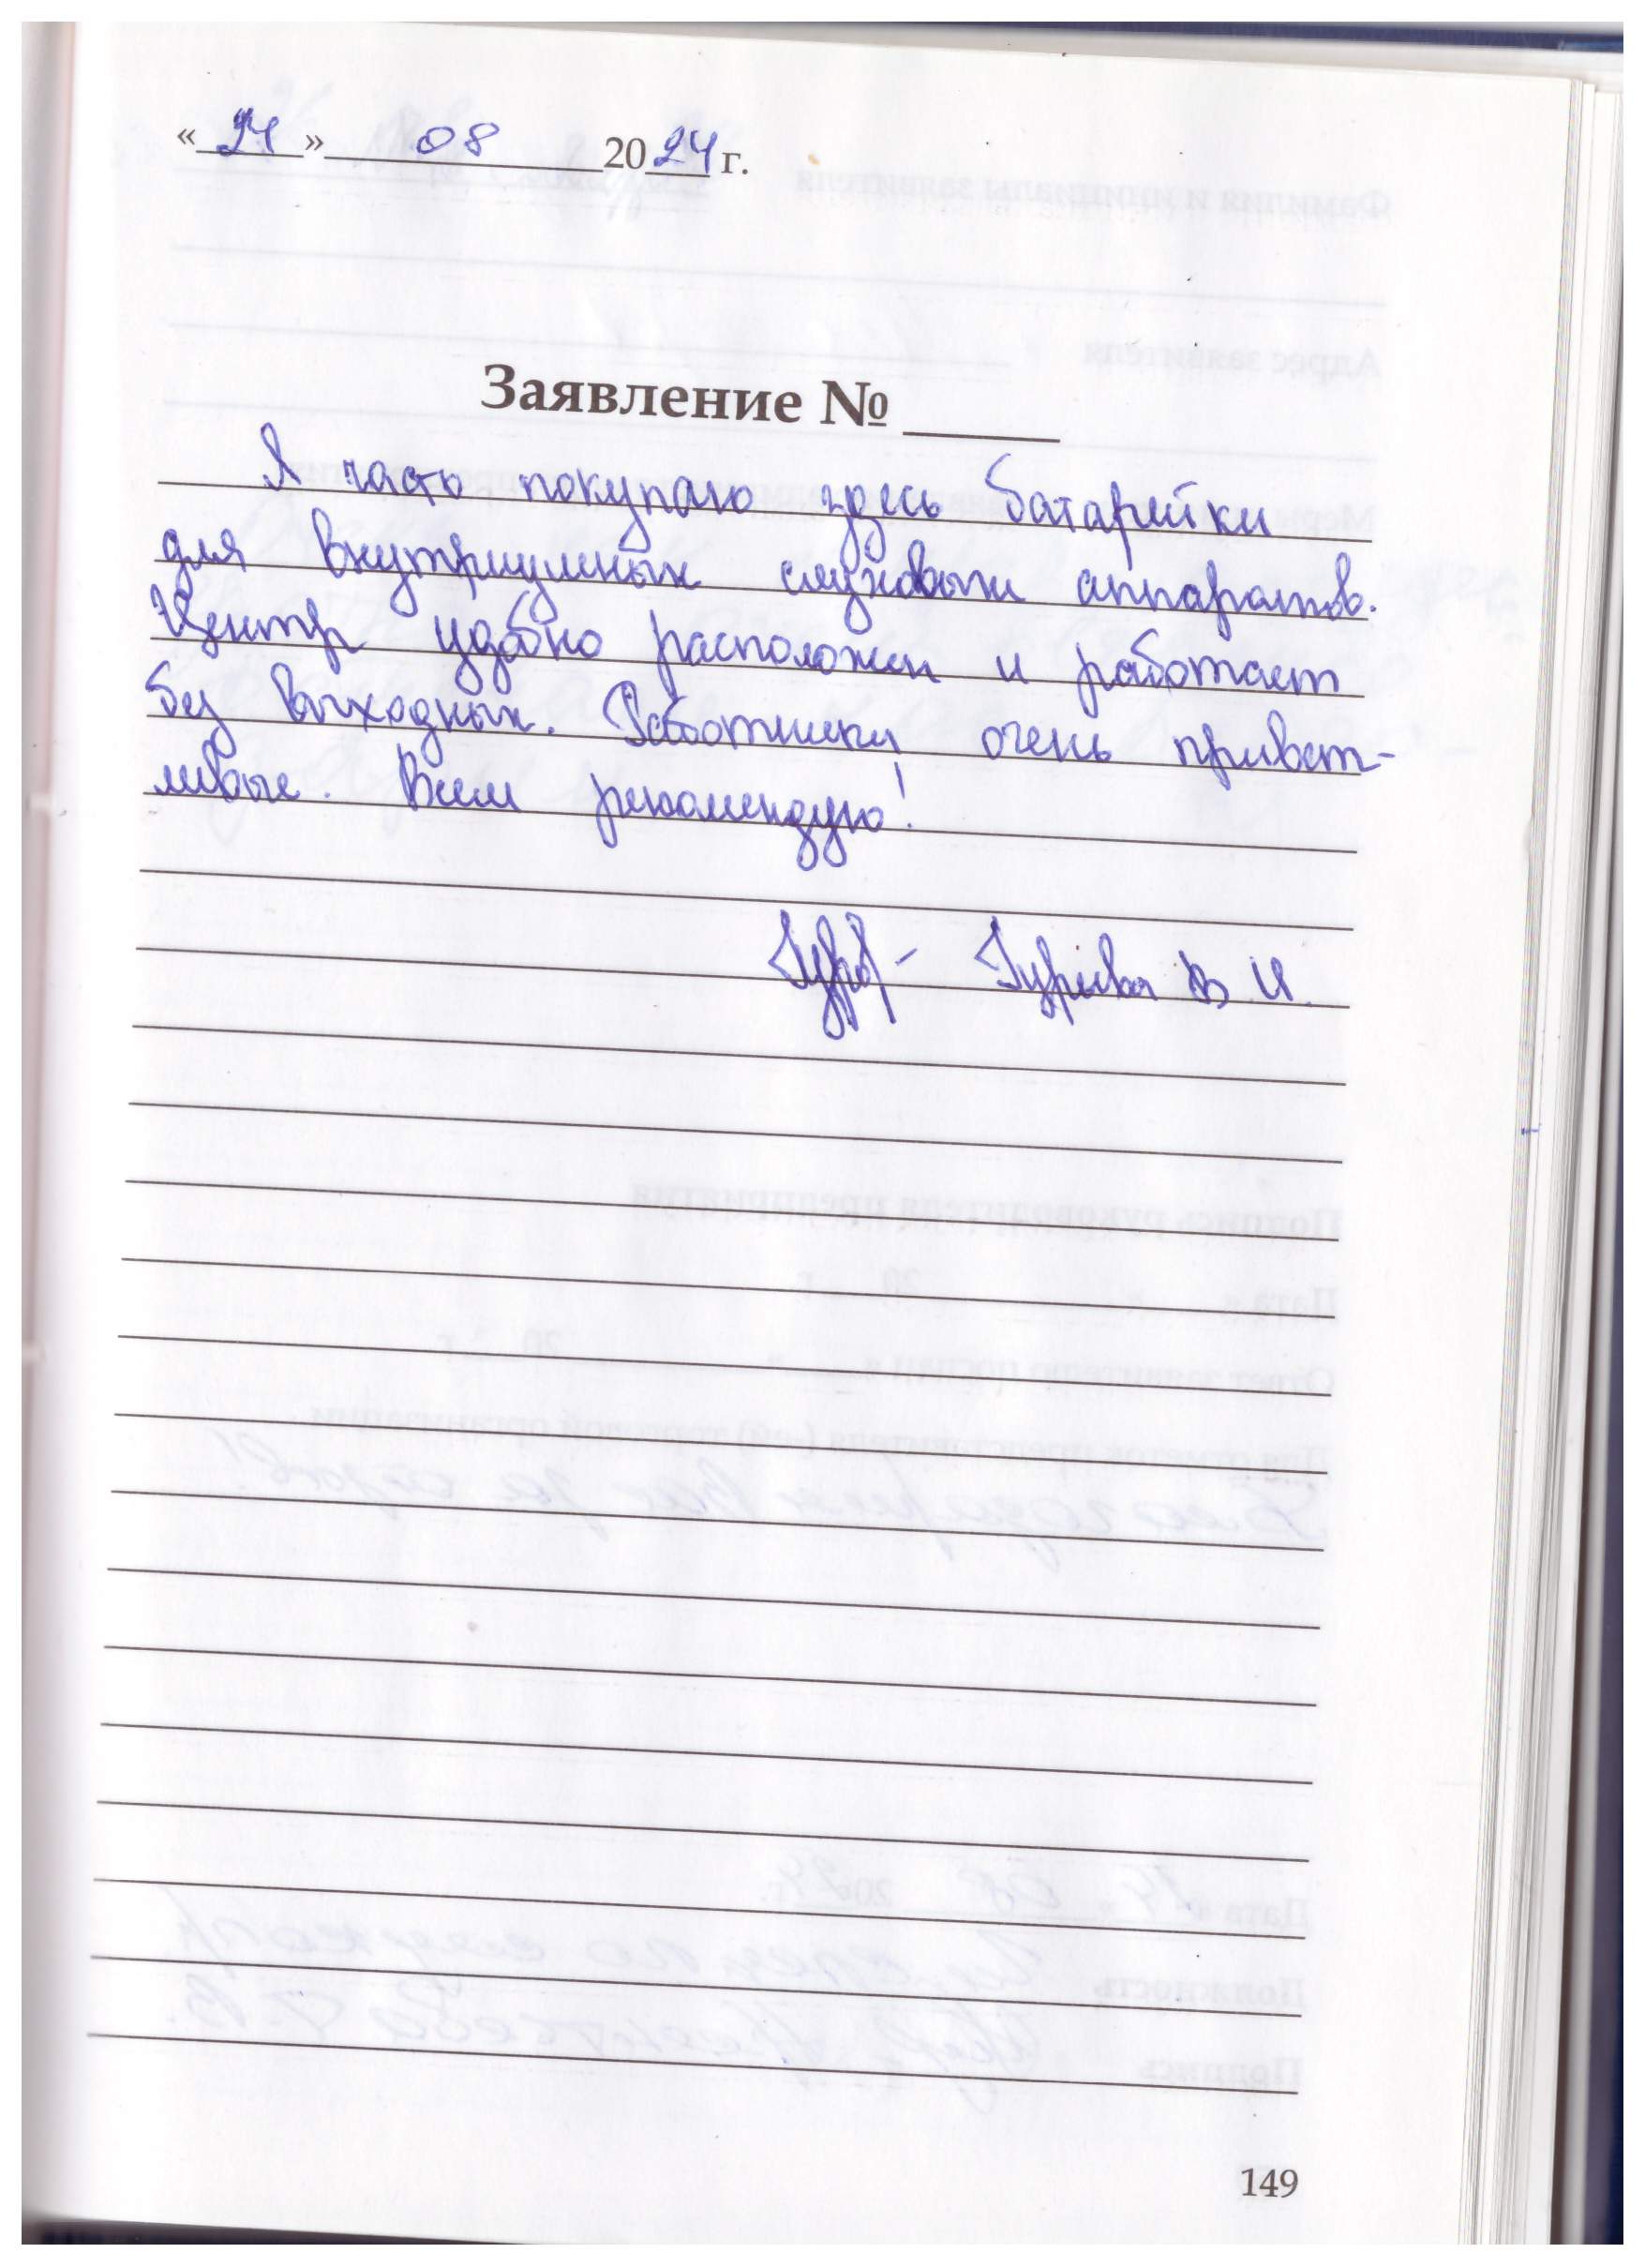 « 24 » 08 2024 г.
Заявление № ____
Я часто покупаю здесь батарейки
для внутриушных слуховых аппаратов.
Центр удобно расположен и работает
без выходных. Работники очень привет-
ливые. Всем рекомендую!
Гурьева В И.
149